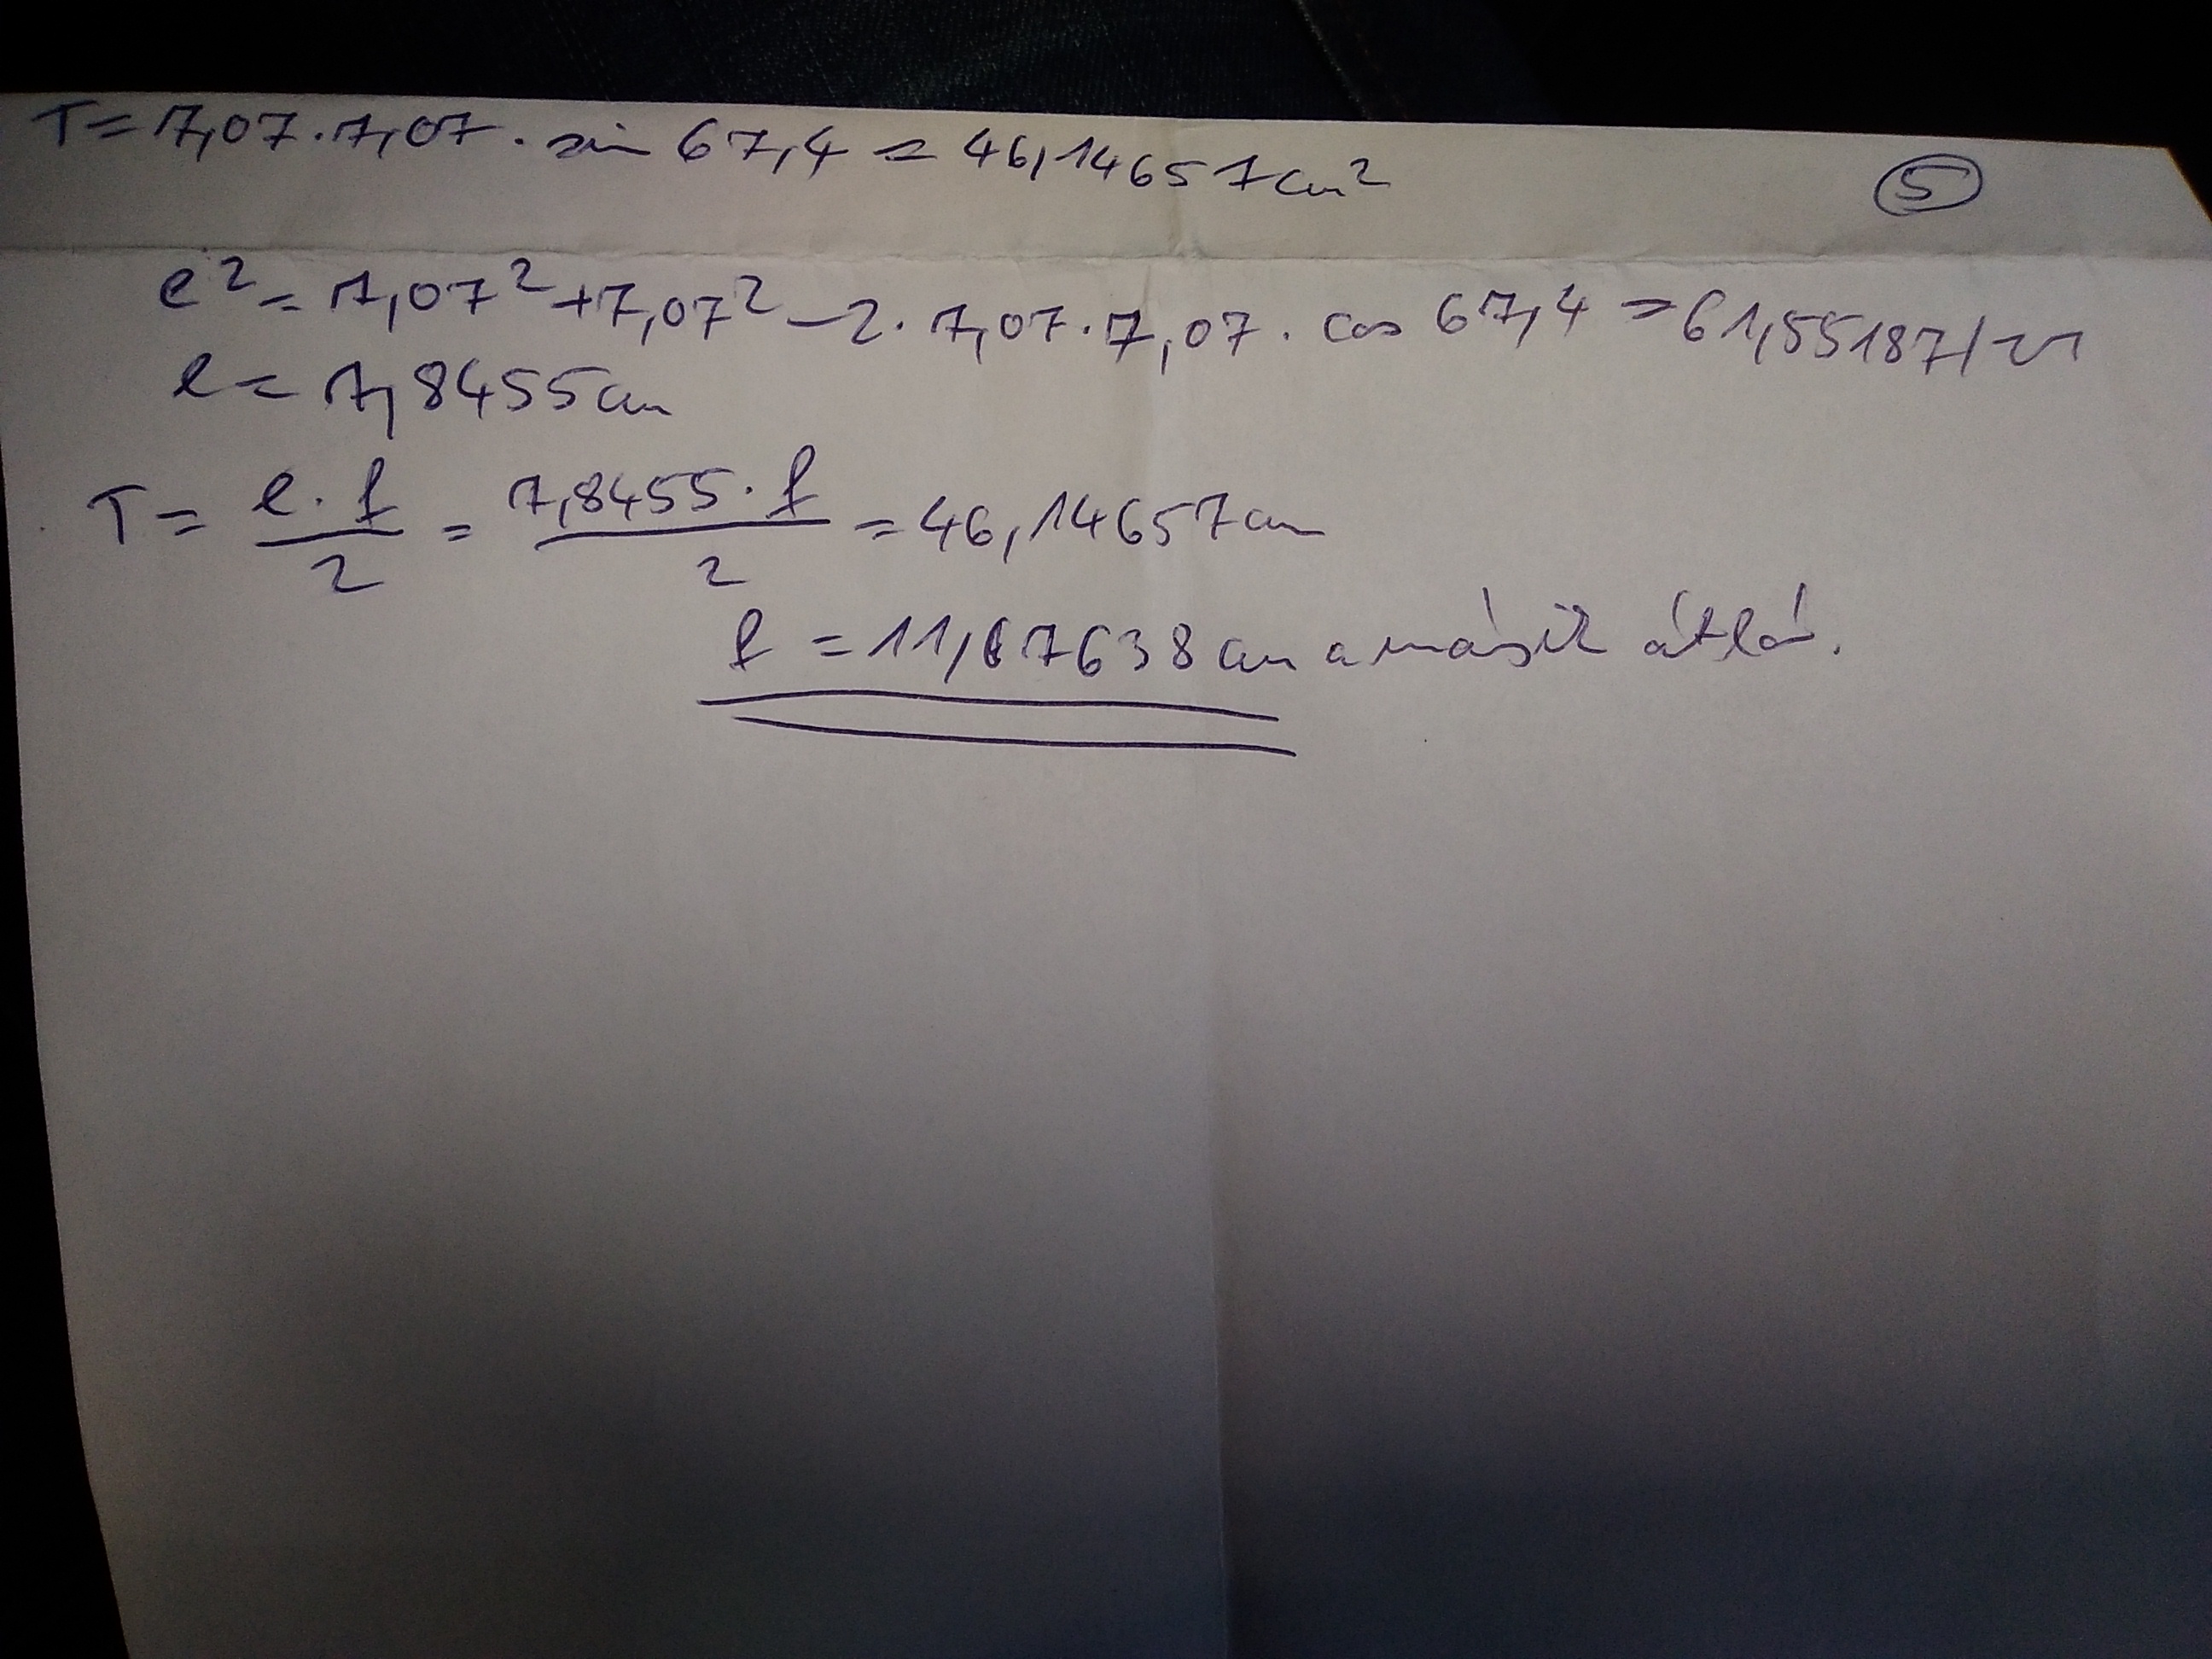 T = 7,07 · 7,07 · sin 67,4 = 46,14657 cm²
5
e² = 7,07² + 7,07² – 2 · 7,07 · 7,07 · cos 67,4 = 61,55187 /√
e = 7,8455 cm
T = e · f / 2 = 7,8455 · f / 2 = 46,14657 cm
f = 11,67638 cm a másik átló.